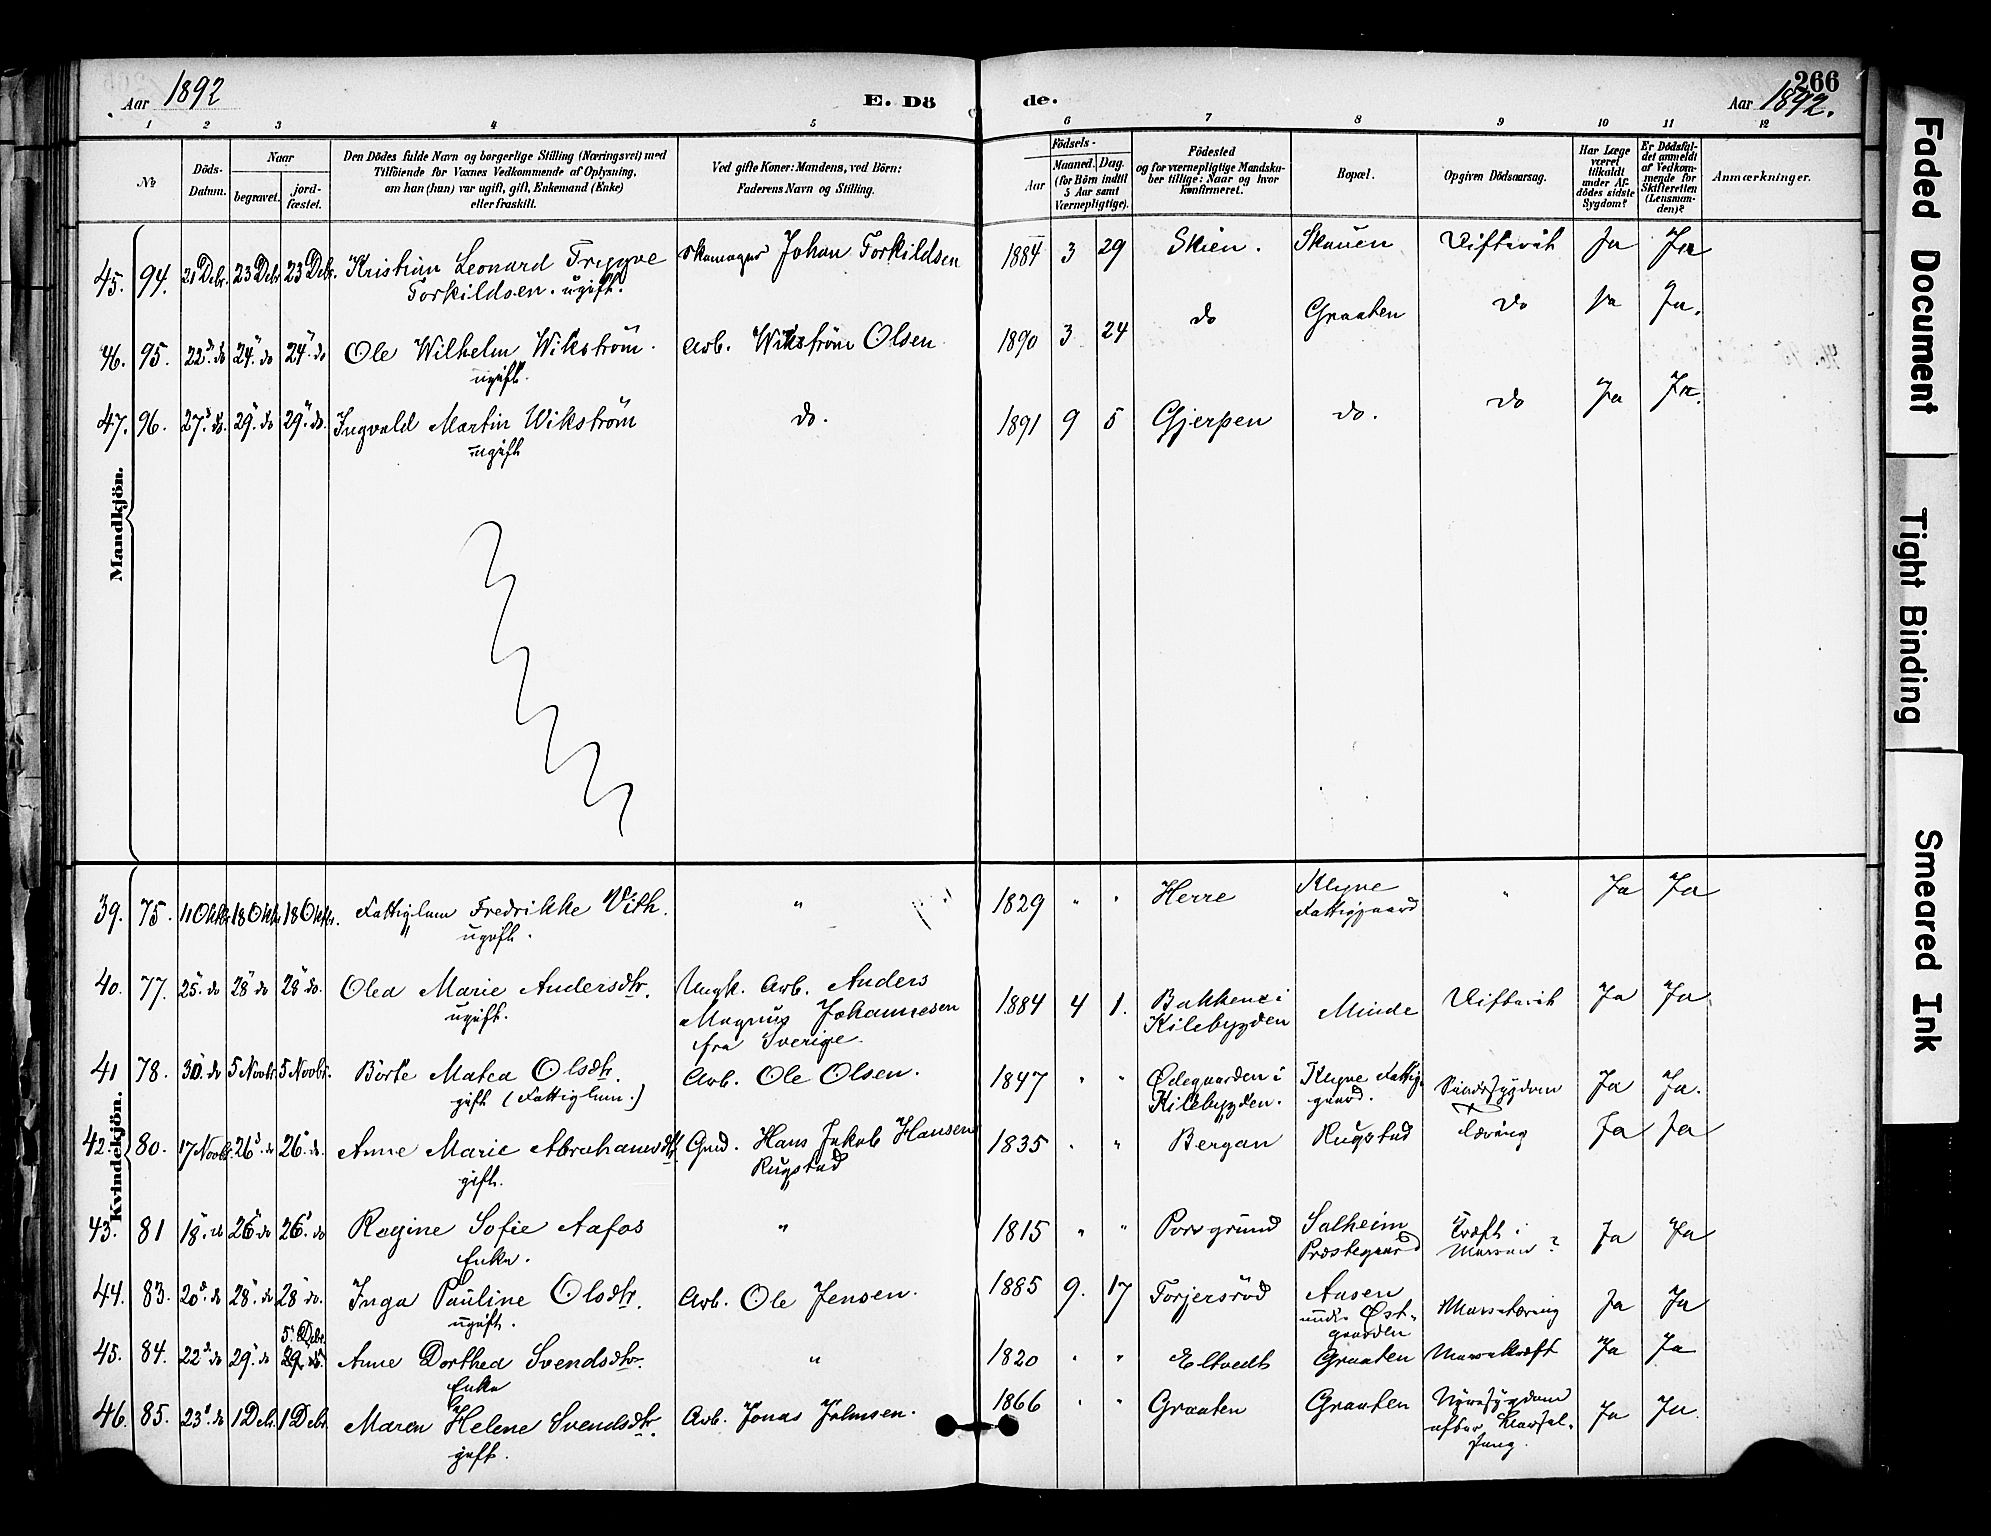 266
Aar 1892
E. Dö
de.
Aar 1892.
1 2 3 4 5 6 7 8 9 10 11 12
No
Döds-Datum.
Naar
begravet.
jord-fæstet.
Den Dödes fulde Navn og borgerlige Stilling (Næringsvei) med
Tilföiende for Voxnes Vedkommende af Oplysning,
om han (hun) var ugift, gift, Enkemand (Enke)
eller fraskilt.
Ved gifte Koner: Mandens, ved Börn:
Faderens Navn og Stilling.
Födsels-
Aar
Maaned. Dag.
(for Börn indtil
5 Aar samt
Værnepligtige).
Födested
og for værnepligtige Mandska-
ber tillige: Naar og hvor
konfirmeret.
Bopæl.
Opgiven Dödsaarsag.
Har Læge
været
tilkaldt
under Af-
dödes sidste
Sygdom?
Er Dödsfal-
det anmeldt
af Vedkom-
mende for
Skifteretten
(Lensman-
den)?
Anmærkninger.
Mandkjön.
45. 94. 21 Debr. 23 Debr 23 Debr. Kristian Leonard Trygve Skomager Johan Torkildsen 1884 3 29 Skien. Skauen Difterit Ja Ja
Torkildsen. ugift.
46. 95. 22. do 24. do 24. do Ole Wilhelm Wikström. Arb. Wikström Olsen 1890 3 24 do Graaten Do Ja Ja.
ugift.
47. 96. 27. do. 29. do 29. do. Ingvald Martin Wikström do. 1891 9 5 Gjerpen do. do Ja Ja.
ugift
Kvindekjön.
39. 75. 11 Oktbr 18 Oktbr 18 Oktbr. Fattiglem Fredrikke Vith. " 1829 " " Herre Klyve " Ja Ja
ugift. Fattiggaard
40. 77. 25. do 28 do 28 do. Olea Marie Andersdtr. Ungk. Arb. Anders 1884 4 1. Bakkene i Minde Difterit Ja Ja
ugift. Magnus Johannesen Kilebygden
fra Sverige.
41 78. 30. do 5 Novbr. 5 Novbr. Börte Matea Olsdtr. Arb. Ole Olsen. 1847 " " Ødegaarden i Klyve Fattig- Sindssygdom Ja Ja.
gift (Fattiglem.) Kilebygden. gaard.
42. 80. 17 Novbr. 26. do 26. do. Anne Marie Abrahamsdtr. Gmd. Hans Jakob Hansen 1835 " " Bergan Rugstad Tæring Ja Ja
gift. Rugstad
43. 81 18. do 26 do 26. do Regine Sofie Aafos " 1815 " " Porsgrund Solheim Kræft i Ja Ja
Enke. Præstegaard Maven?
44. 83. 20. do 28. do 28 do. Inga Pauline Olsdtr. Arb. Ole Jensen. 1885 9. 17 Torjersröd Aasen Mavetæring Ja Ja
ugift. under Øst-
gaarden
5. Debr.
45. 84. 22. do 29. do 29. do Anne Dorthea Svendsdtr. " 1820 " " Eltvedt Graaten Mavekræft Ja Ja
Enke
46. 85. 23. do 1 Debr. 1 Debr. Maren Helene Svendsdtr. Arb. Jonas Johnsen. 1866 " " Graaten Graaten Nyresygdom Ja Ja.
gift. efter Barsel-
seng.
Faded Document
Tight Binding
Smeared Ink